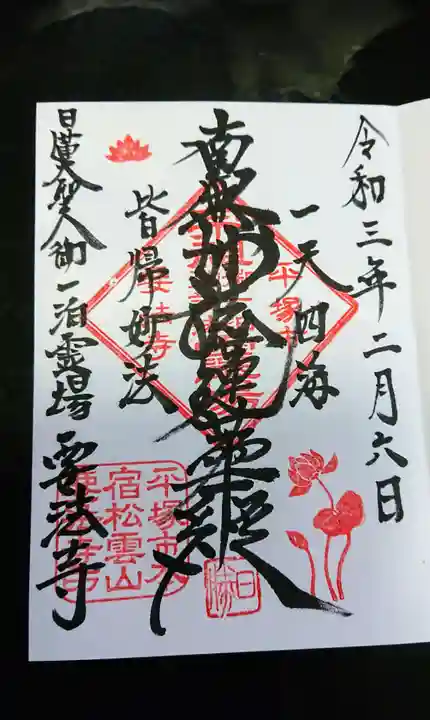 令和三年二月六日
一天四海
南無妙法蓮華経
皆帰妙法
日蓮大聖人御一泊霊場 要法寺
平塚市
平塚市
宿松雲山
要法寺